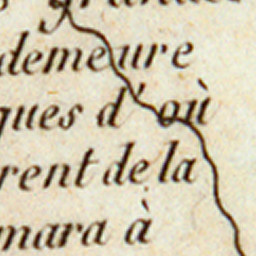 demeure
ques d'où
rent de la
mara à